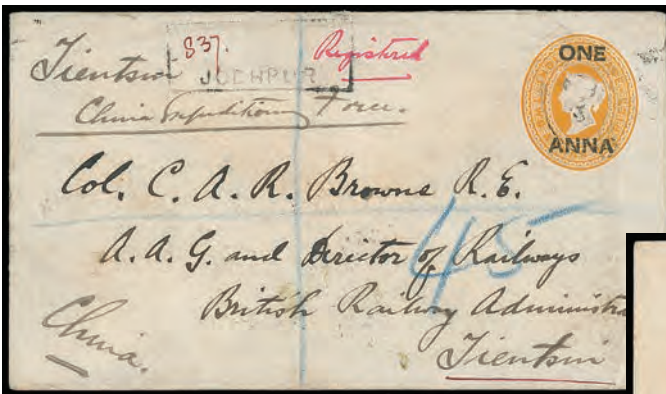 Tientsin
837.
Registered
JODHPUR
China Expeditionary Force.
ONE
ANNA
Col. C. A. R. Browne R. E.
A. A. G. and Director of Railways
45
British Railway Administra
China.
Tientsin